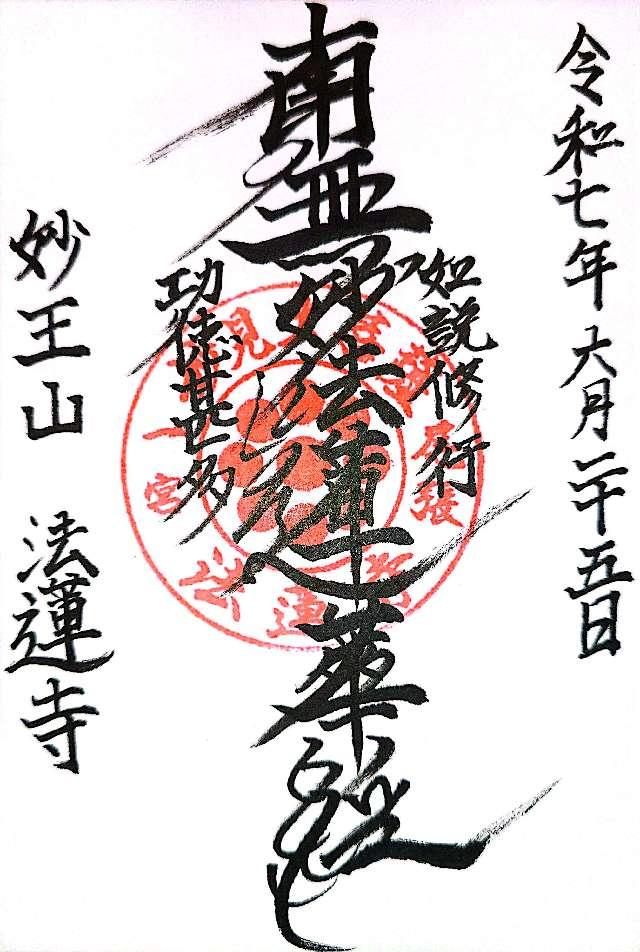 令和七年六月二十五日
如説修行
南無妙法蓮華経
功徳甚多
妙王山 法蓮寺